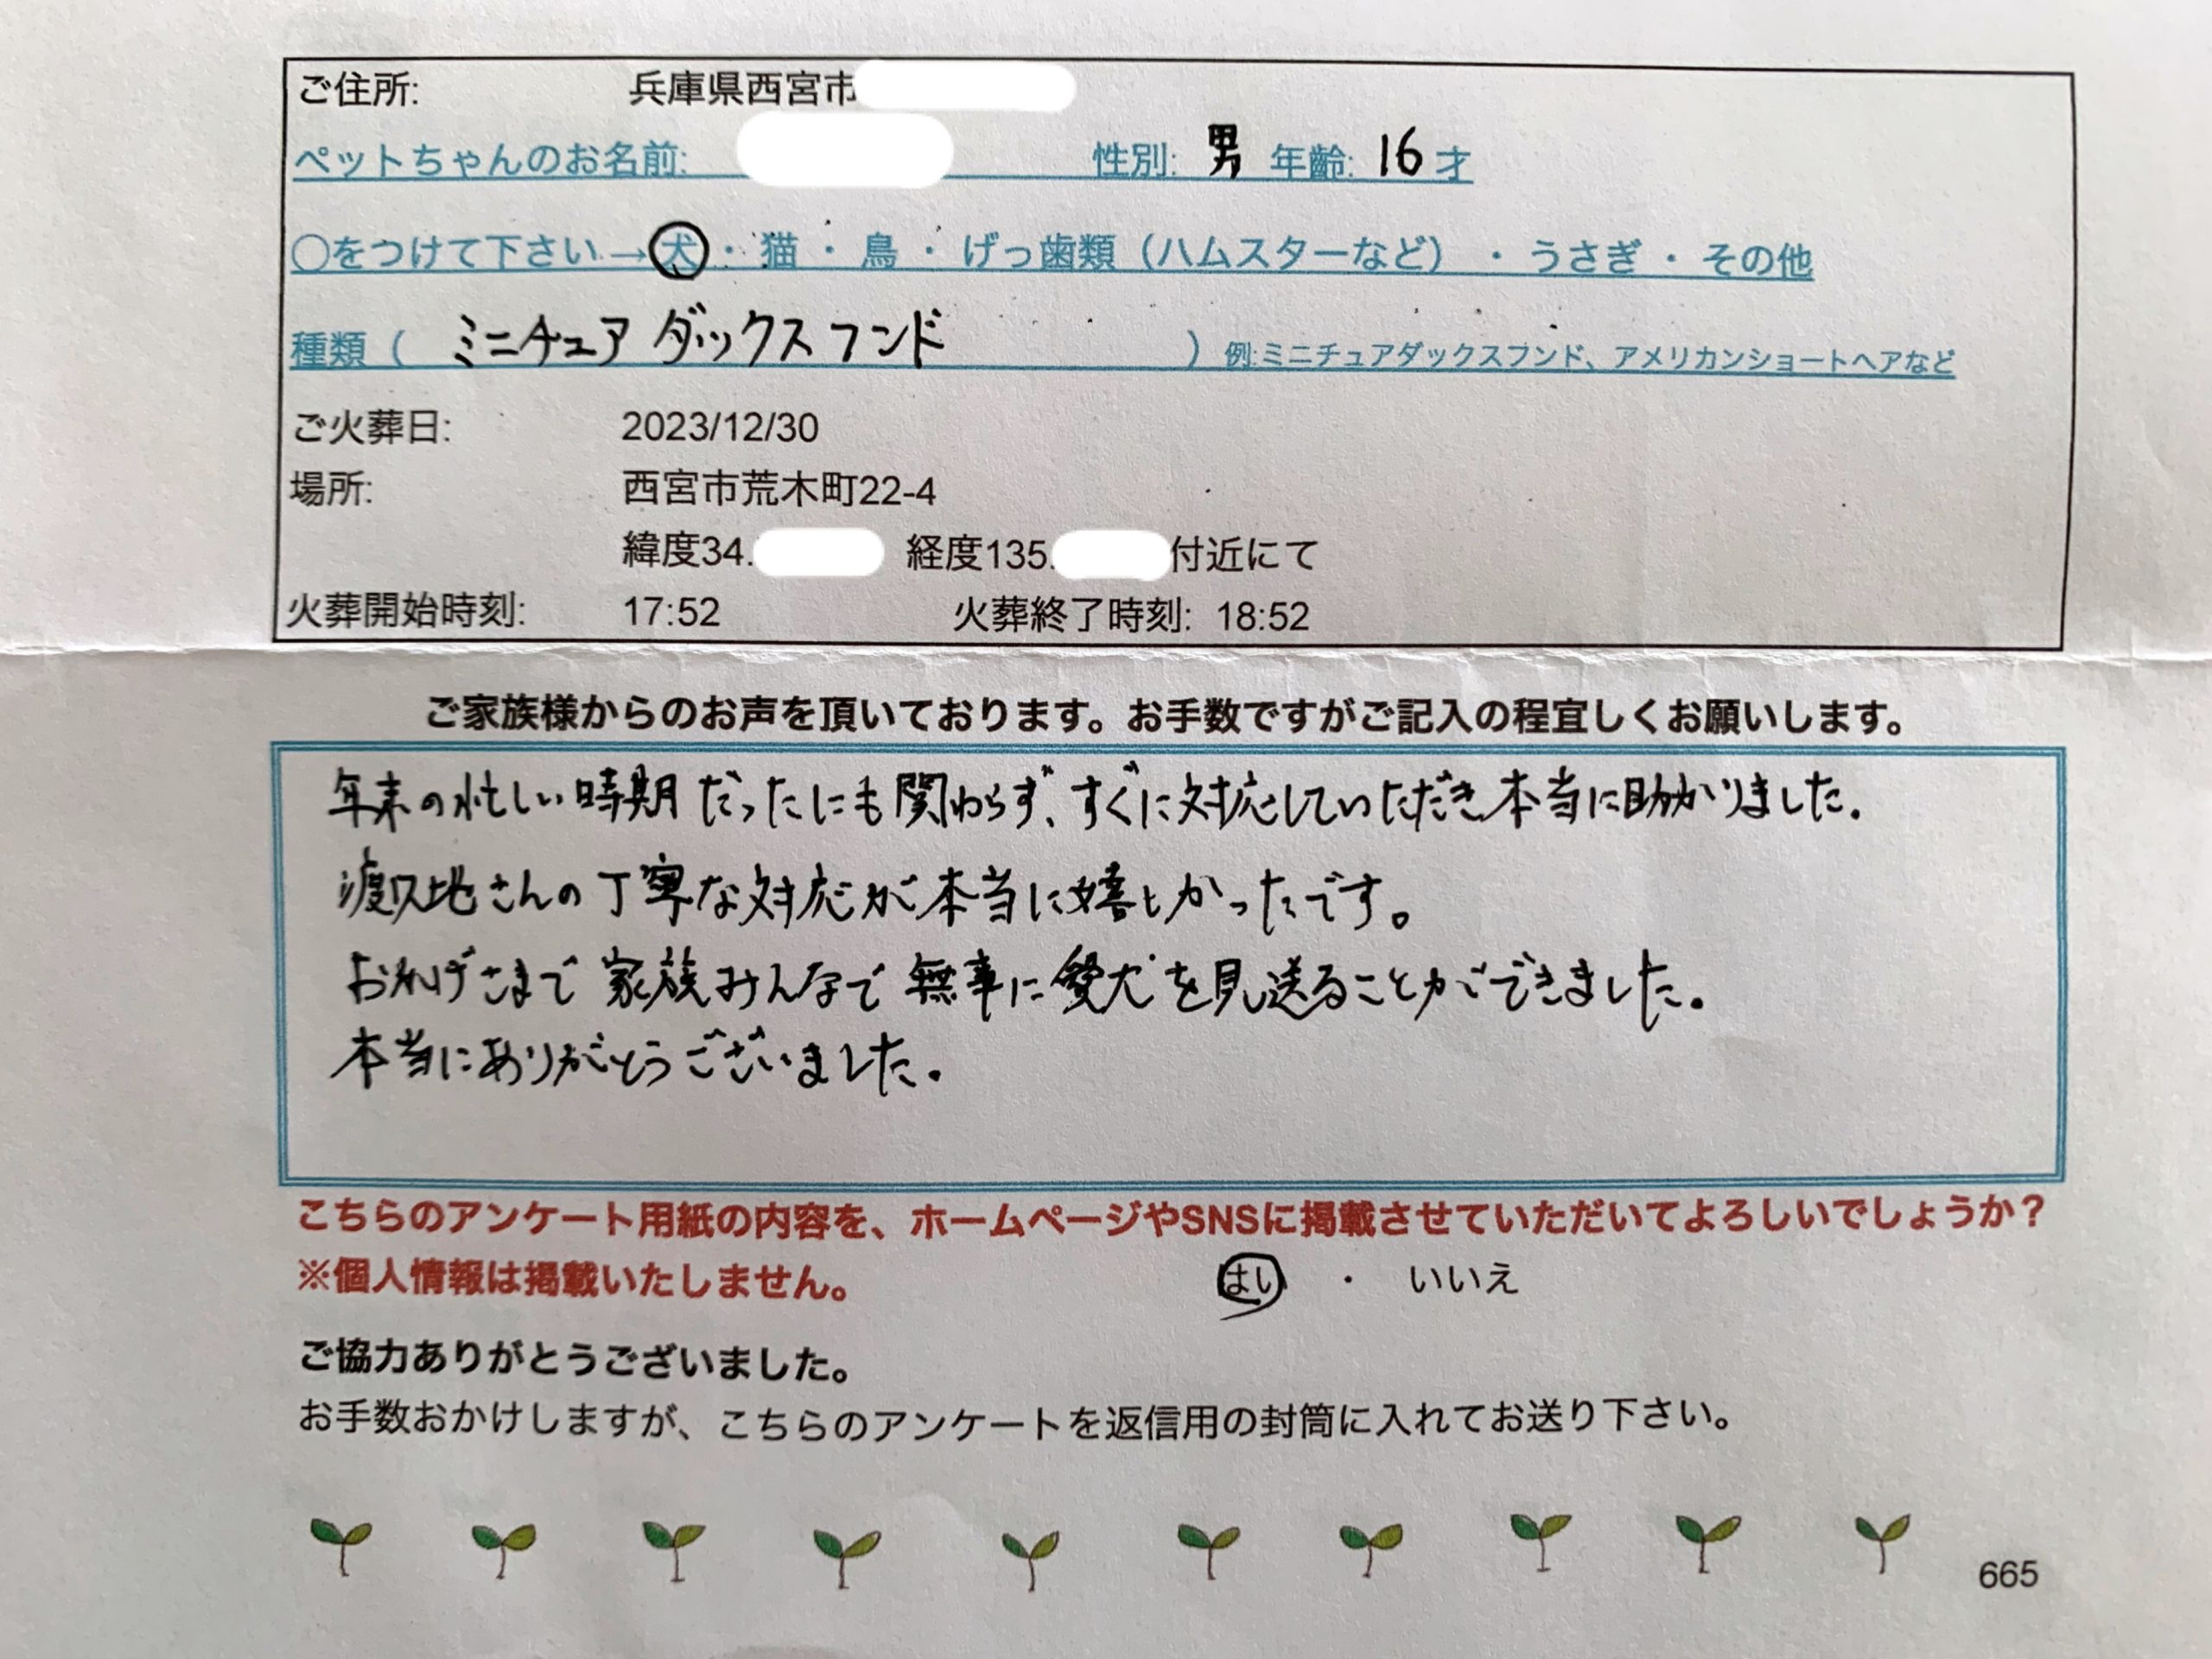 ご住所: 兵庫県西宮市
ペットちゃんのお名前: 性別: 男 年齢: 16才
○をつけて下さい→犬・猫・鳥・げっ歯類(ハムスターなど)・うさぎ・その他
種類( ミニチュアダックスフンド )例:ミニチュアダックスフンド、アメリカンショートヘアなど
ご火葬日: 2023/12/30
場所: 西宮市荒木町22-4
緯度34. 経度135. 付近にて
火葬開始時刻: 17:52 火葬終了時刻: 18:52
ご家族様からのお声を頂いております。お手数ですがご記入の程宜しくお願いします。
年末の忙しい時期だったにも関わらず、すぐに対応していただき本当に助かりました。
渡久地さんの丁寧な対応が本当に嬉しかったです。
おかげさまで家族みんなで無事に愛犬を見送ることができました。
本当にありがとうございました。
こちらのアンケート用紙の内容を、ホームページやSNSに掲載させていただいてよろしいでしょうか？
※個人情報は掲載いたしません。 はい ・ いいえ
ご協力ありがとうございました。
お手数おかけしますが、こちらのアンケートを返信用の封筒に入れてお送り下さい。
665